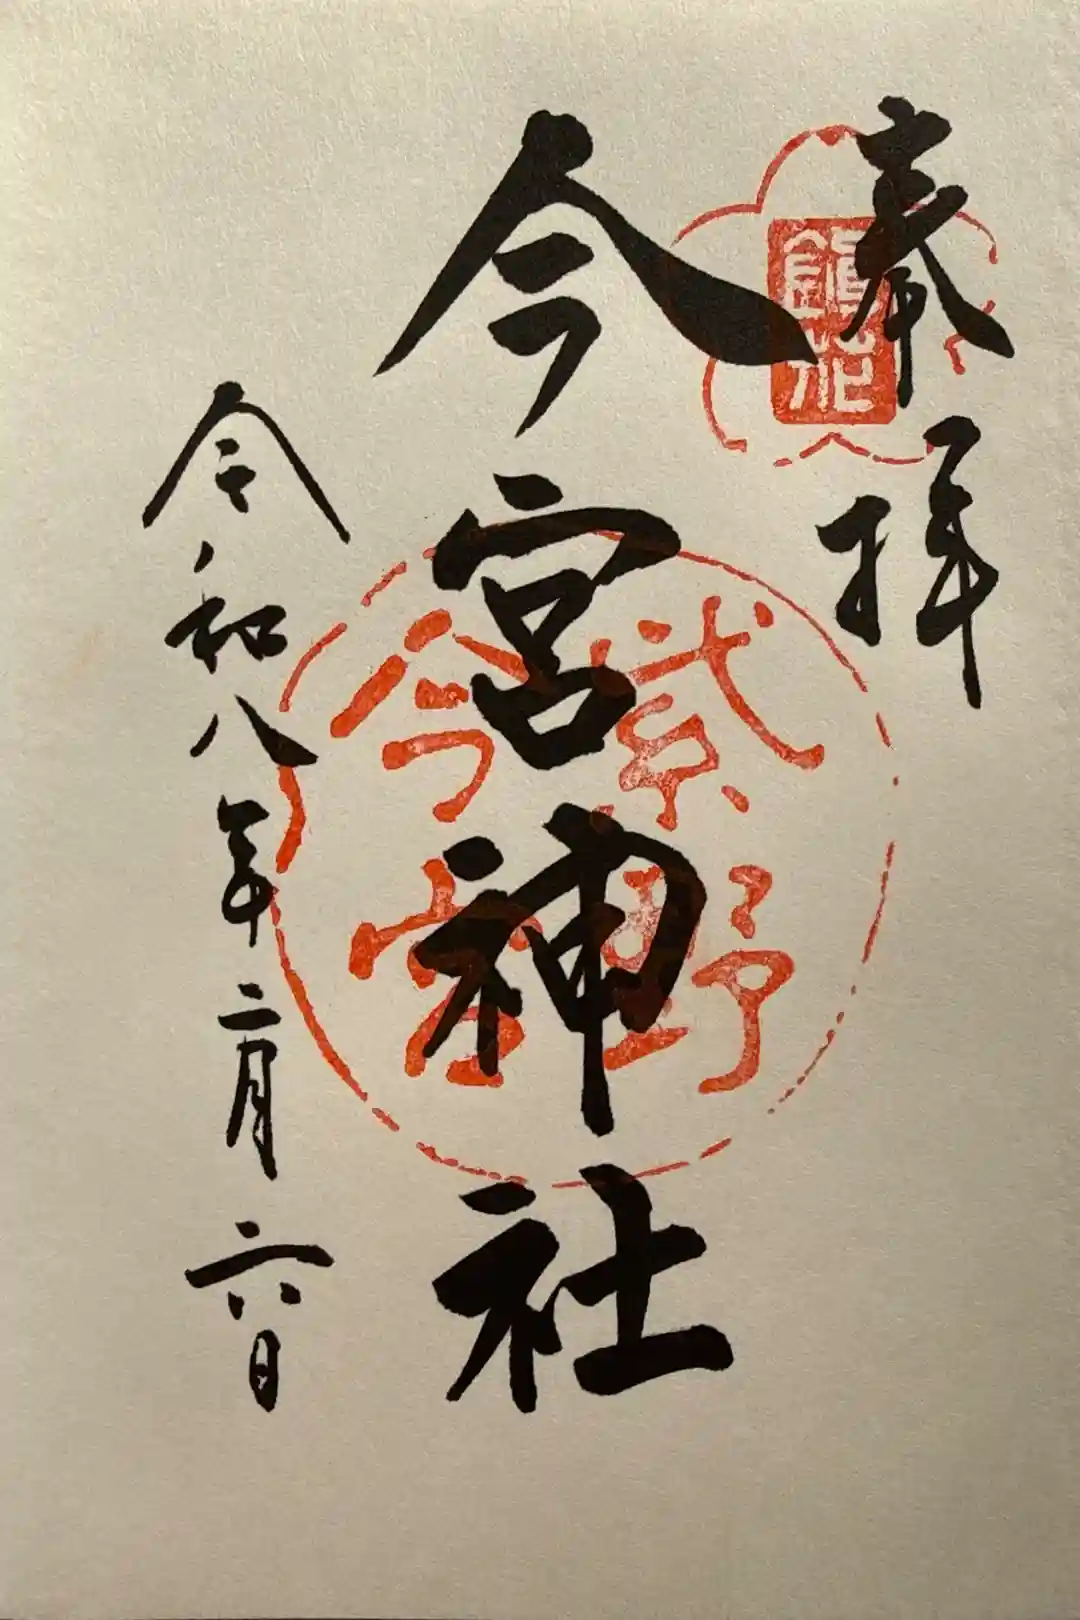 奉拝
鎮花
今宮神社
紫野
今宮
令和八年二月六日